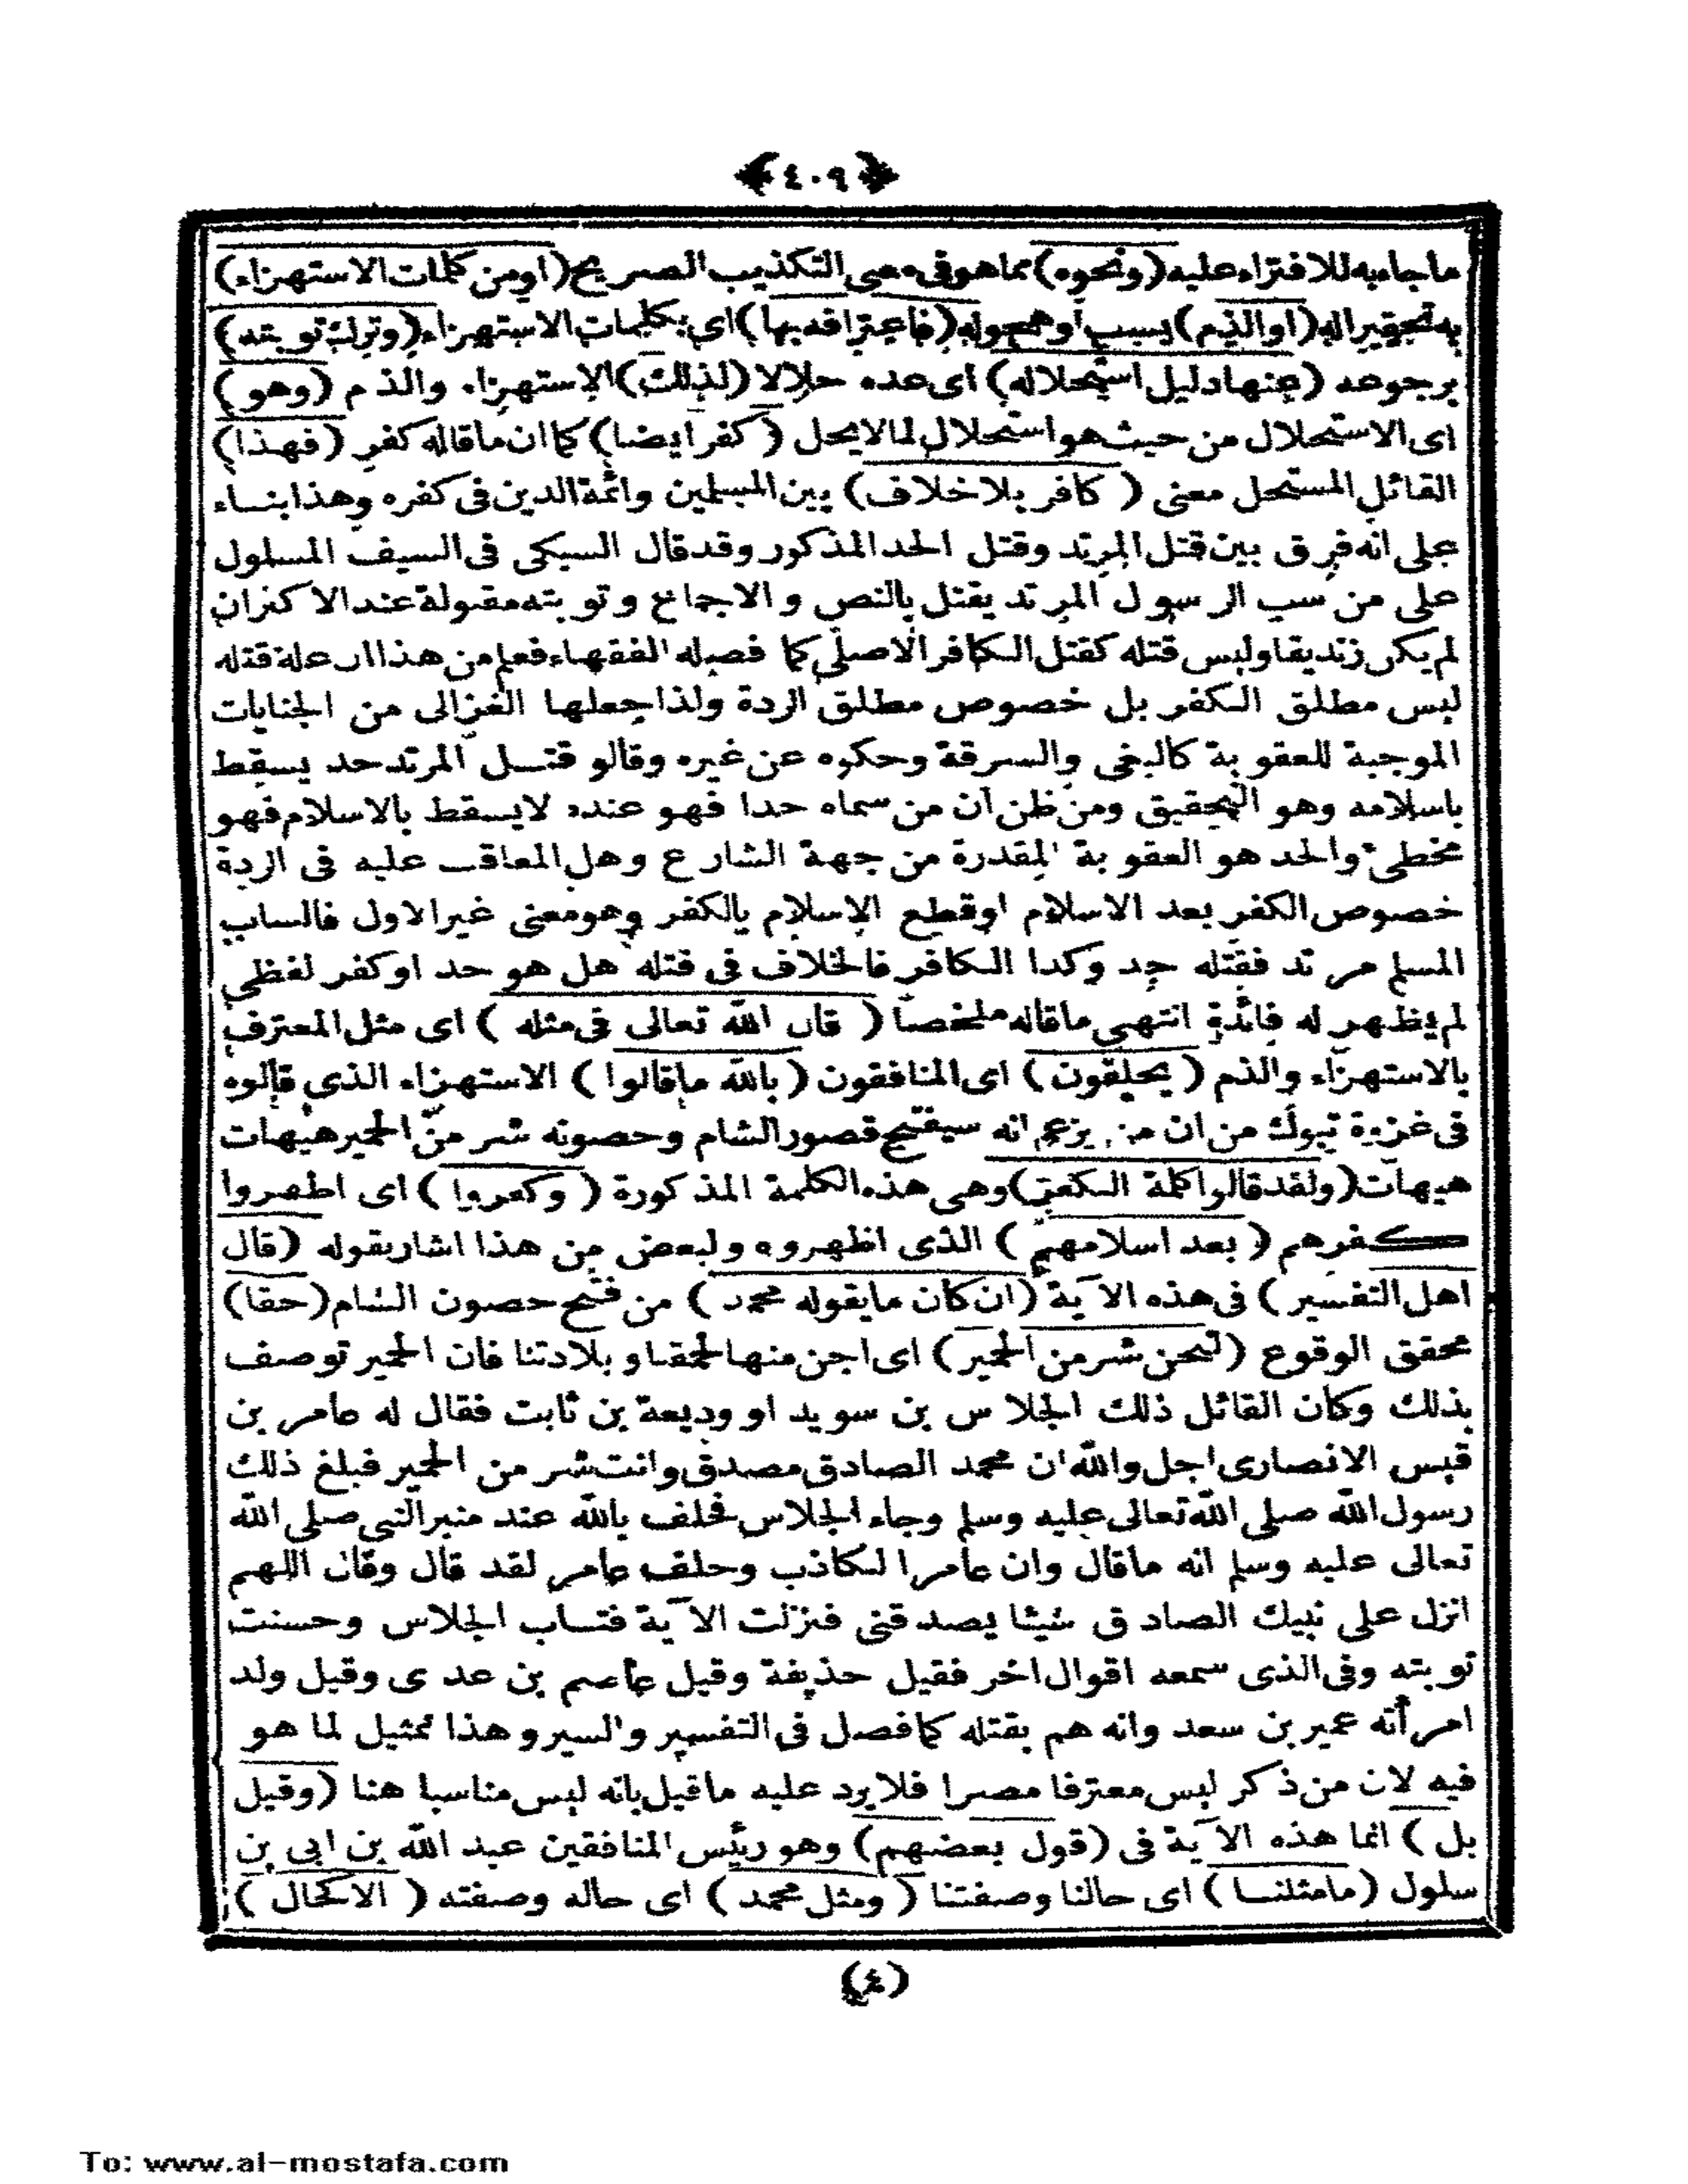 ﴿٤٠٩﴾
ما جاء به للافتراء عليه (ونحوه) مما هو فى معنى التكذيب الصريح (او من كلمات الاستهزاء)
به تحقيرا له (او الذم) بسبب او هجو له (فاعترافه بها) اى بكلمات الاستهزاء (وترك توبته)
برجوعه (عنها دليل استحلاله) اى عده حلالا (لذلك) الاستهزاء والذم (وهو)
اى الاستحلال من حيث هو استحلال لما لا يحل (كفر أيضا) كما ان ما قاله كفر (فهذا)
القائل المستحل معنى (كافر بلا خلاف) بين المسلمين وائمة الدين فى كفره وهذا بناء
على انه فرق بين قتل المرتد وقتل الحد المذكور وقد قال السبكى فى السيف المسلول
على من سب الرسول المرتد يقتل بالنص والاجماع وتوبته مقبولة عند الاكثر ان
لم يكن زنديقا وليس قتله كقتل الكافر الاصلى كما فصله الفقهاء فعلم من هذا ان علة قتله
ليس مطلق الكفر بل خصوص مطلق الردة ولذا جعلها الغزالى من الجنايات
الموجبة للعقوبة كالبغى والسرقة وحكوه عن غيره وقالو قتل المرتد حد يسقط
باسلامه وهو التحقيق ومن ظن ان من سماه حدا فهو عنده لا يسقط بالاسلام فهو
مخطئ والحد هو العقوبة المقدرة من جهة الشارع وهل المعاقب عليه فى الردة
خصوص الكفر بعد الاسلام او قطع الاسلام بالكفر وهو معنى غير الاول فالساب
المسلم مرتد فقتله حد وكذا الكافر فالخلاف فى قتله هل هو حد او كفر لفظى
لم يظهر له فائدة انتهى ما قاله ملخصا (قال الله تعالى فى مثله) اى مثل المعترف
بالاستهزاء والذم (يحلفون) اى المنافقون (بالله ما قالوا) الاستهزاء الذى قالوه
فى غزوة تبوك من ان من يزعم انه سيفتح قصور الشام وحصونه شر من الحمير هيهات
هيهات (ولقد قالوا كلمة الكفر) وهى هذه الكلمة المذكورة (وكفروا) اى اظهروا
كفرهم (بعد اسلامهم) الذى اظهروه ولبعض من هذا اشار بقوله (قال
اهل التفسير) فى هذه الآية (ان كان ما يقوله محمد) من فتح حصون الشام (حقا)
محقق الوقوع (لنحن شر من الحمير) اى اجن منها لحمقنا وبلادتنا فان الحمير توصف
بذلك وكان القائل ذلك الجلاس بن سويد او وديعة بن ثابت فقال له عامر بن
قيس الانصارى اجل والله ان محمد الصادق مصدق وانت شر من الحمير فبلغ ذلك
رسول الله صلى الله تعالى عليه وسلم وجاء الجلاس فحلف بالله عند منبر النبى صلى الله
تعالى عليه وسلم انه ما قال وان عامرا لكاذب وحلف عامر لقد قال وقال اللهم
انزل على نبيك الصادق شيئا يصدقنى فنزلت الآية فتاب الجلاس وحسنت
توبته وفى الذى سمعه اقوال اخر فقيل حذيفة وقيل عاصم بن عدى وقيل ولد
امرأته عمير بن سعد وانه هم بقتله كما فصل فى التفسير والسير وهذا تمثيل لما هو
فيه لان من ذكر ليس معترفا مصرا فلا يرد عليه ما قيل بانه ليس مناسبا هنا (وقيل
بل) انما هذه الآية فى (قول بعضهم) وهو رئيس المنافقين عبد الله بن ابى بن
سلول (ما مثلنا) اى حالنا وصفتنا (ومثل محمد) اى حاله وصفته (الا كحال)
(٤)
To: www.al-mostafa.com